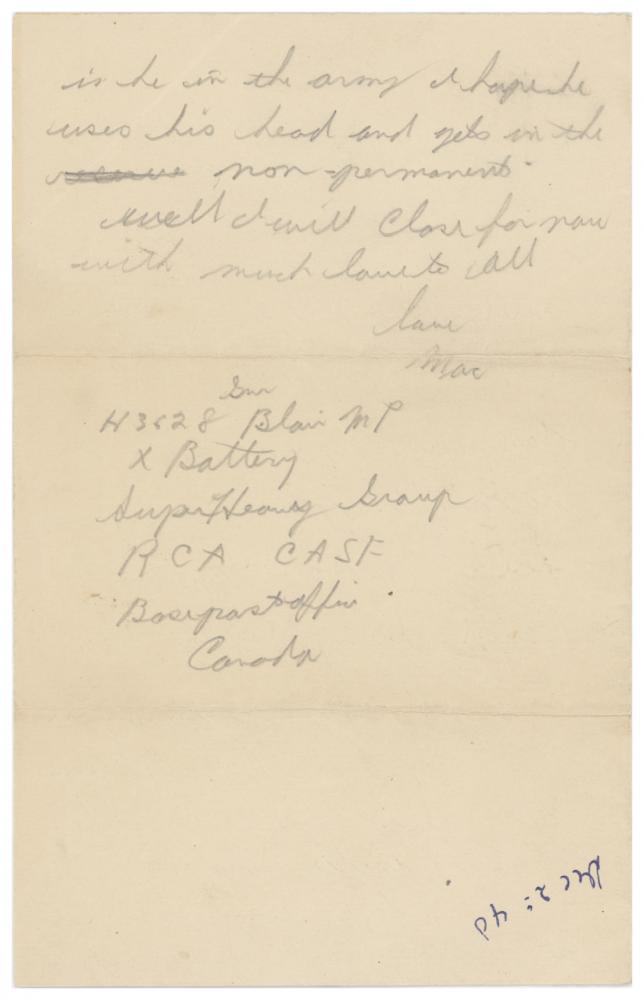 is he in the army I hope he
uses his head and gets in the
reserve non-permanent.
well I will close for now
with much love to all
love
Mac
Gnr
H3628 Blair M P
X Battery
Super Heavy Group
R C A C A S F
Base post office
Canada